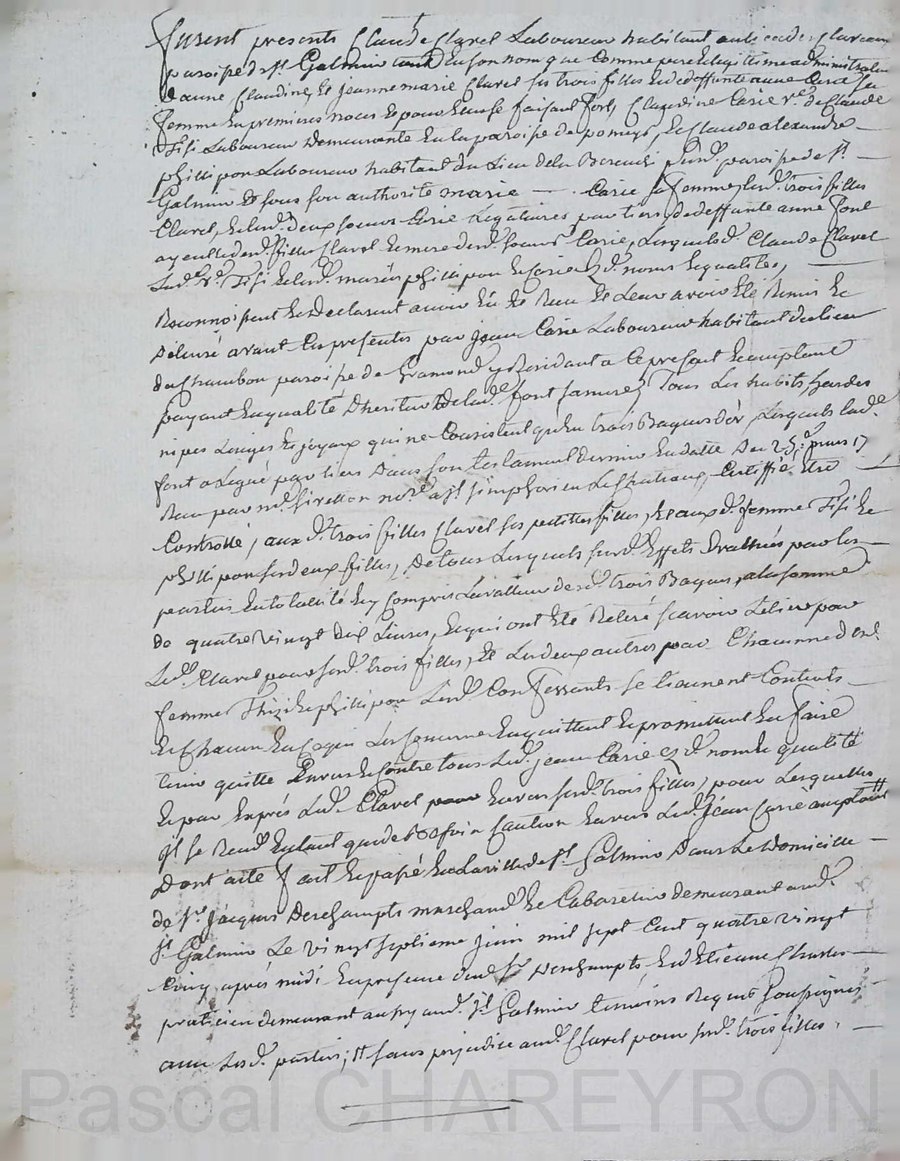 furent presents Claude Clavel Laboureur habitant au lieu de
paroisse de St Galmier tant en son nom que comme pere et legitime administrateur
d'anne Claudine, et jeanne marie Clavel ses trois filles et de deffunte anne Carie sa
femme en premieres noces et pour elles se faisant fort, Claudine Carie ve. de Claude
Tisi Laboureur Demeurante en la paroisse de pomeys, et Claude alexandre
philippon Laboureur habitant du Lieu de la surd. paroisse de St.
Galmier et sous son authorité marie — Carie sa femme, lesd. trois filles
Clavel, et lesd. deux soeurs Carie legataires par tiers de deffunte anne font
ayeulle desd. filles Clavel et mere desd. soeurs Carie, Lesquels d. Claude Clavel
Lad. ve. Tisi et lesd. mariés philippon et Carie esd. noms et qualités,
Reconnoissent et declarent avoir eu et Receu et Leur avoir été Remis et
Delivré avant ces presentes par jean Carie Laboureur habitant du lieu
du Chambon paroisse de Gramond y Residant a ce present et acceptant
payant en qualité D'heritier de lad. font sa mere, Tous Les habits, hardes
nipes Linges et joyaux qui ne Consistent qu'en trois Bagues d'or, Lesquels lad.
font a Legué par tiers Dans son testament dernier en datte Du 25e. mars 17
Receu par me. no.re a St. simphorien Le chateau, Certiffié être
Controllé, aux d. trois filles Clavel ses petittes filles, et aux d. femme Tisi et
philippon ses deux filles, De tous Lesquels surd. Effets Evalués par les
parties en totalité en y Compris La valleur desd. trois Bagues, a la somme
de quatre vingt dix Livres, et qui ont été Retiré scavoir Le tier par
Led. Clavel pour sesd. trois filles, et Les deux autres par Chacunne desd.
femme Thisi et philippon Lesd. Confessants se tiennent Contents
et Chacun en ce qui Les Concerne en quittent et promettent en faire
tenir quitte Envers et Contre tous Led. jean Carie esd. nom et qualité
et par Exprès Led. Clavel envers sesd. trois filles, pour Lesquelles
il se Rend entant que de besoin Caution envers Led. jean Carie acceptant
Dont acte fait et passé En la ville de St. Galmier Dans Le Domicille
de sr. jacques Deschamps marchand et Cabaretier demeurant aud.
St. Galmier Le vingt septieme juin mil sept Cent quatre vingt
Cinq après midi En presence dud. sr. Deschamps, et d'Etienne
praticien demeurant aussy aud. St. Galmier temoins Requis soussignés
avec Lesd. parties; et sans prejudice aud. Clavel pour sesd. trois filles.
Pascal CHAREYRON